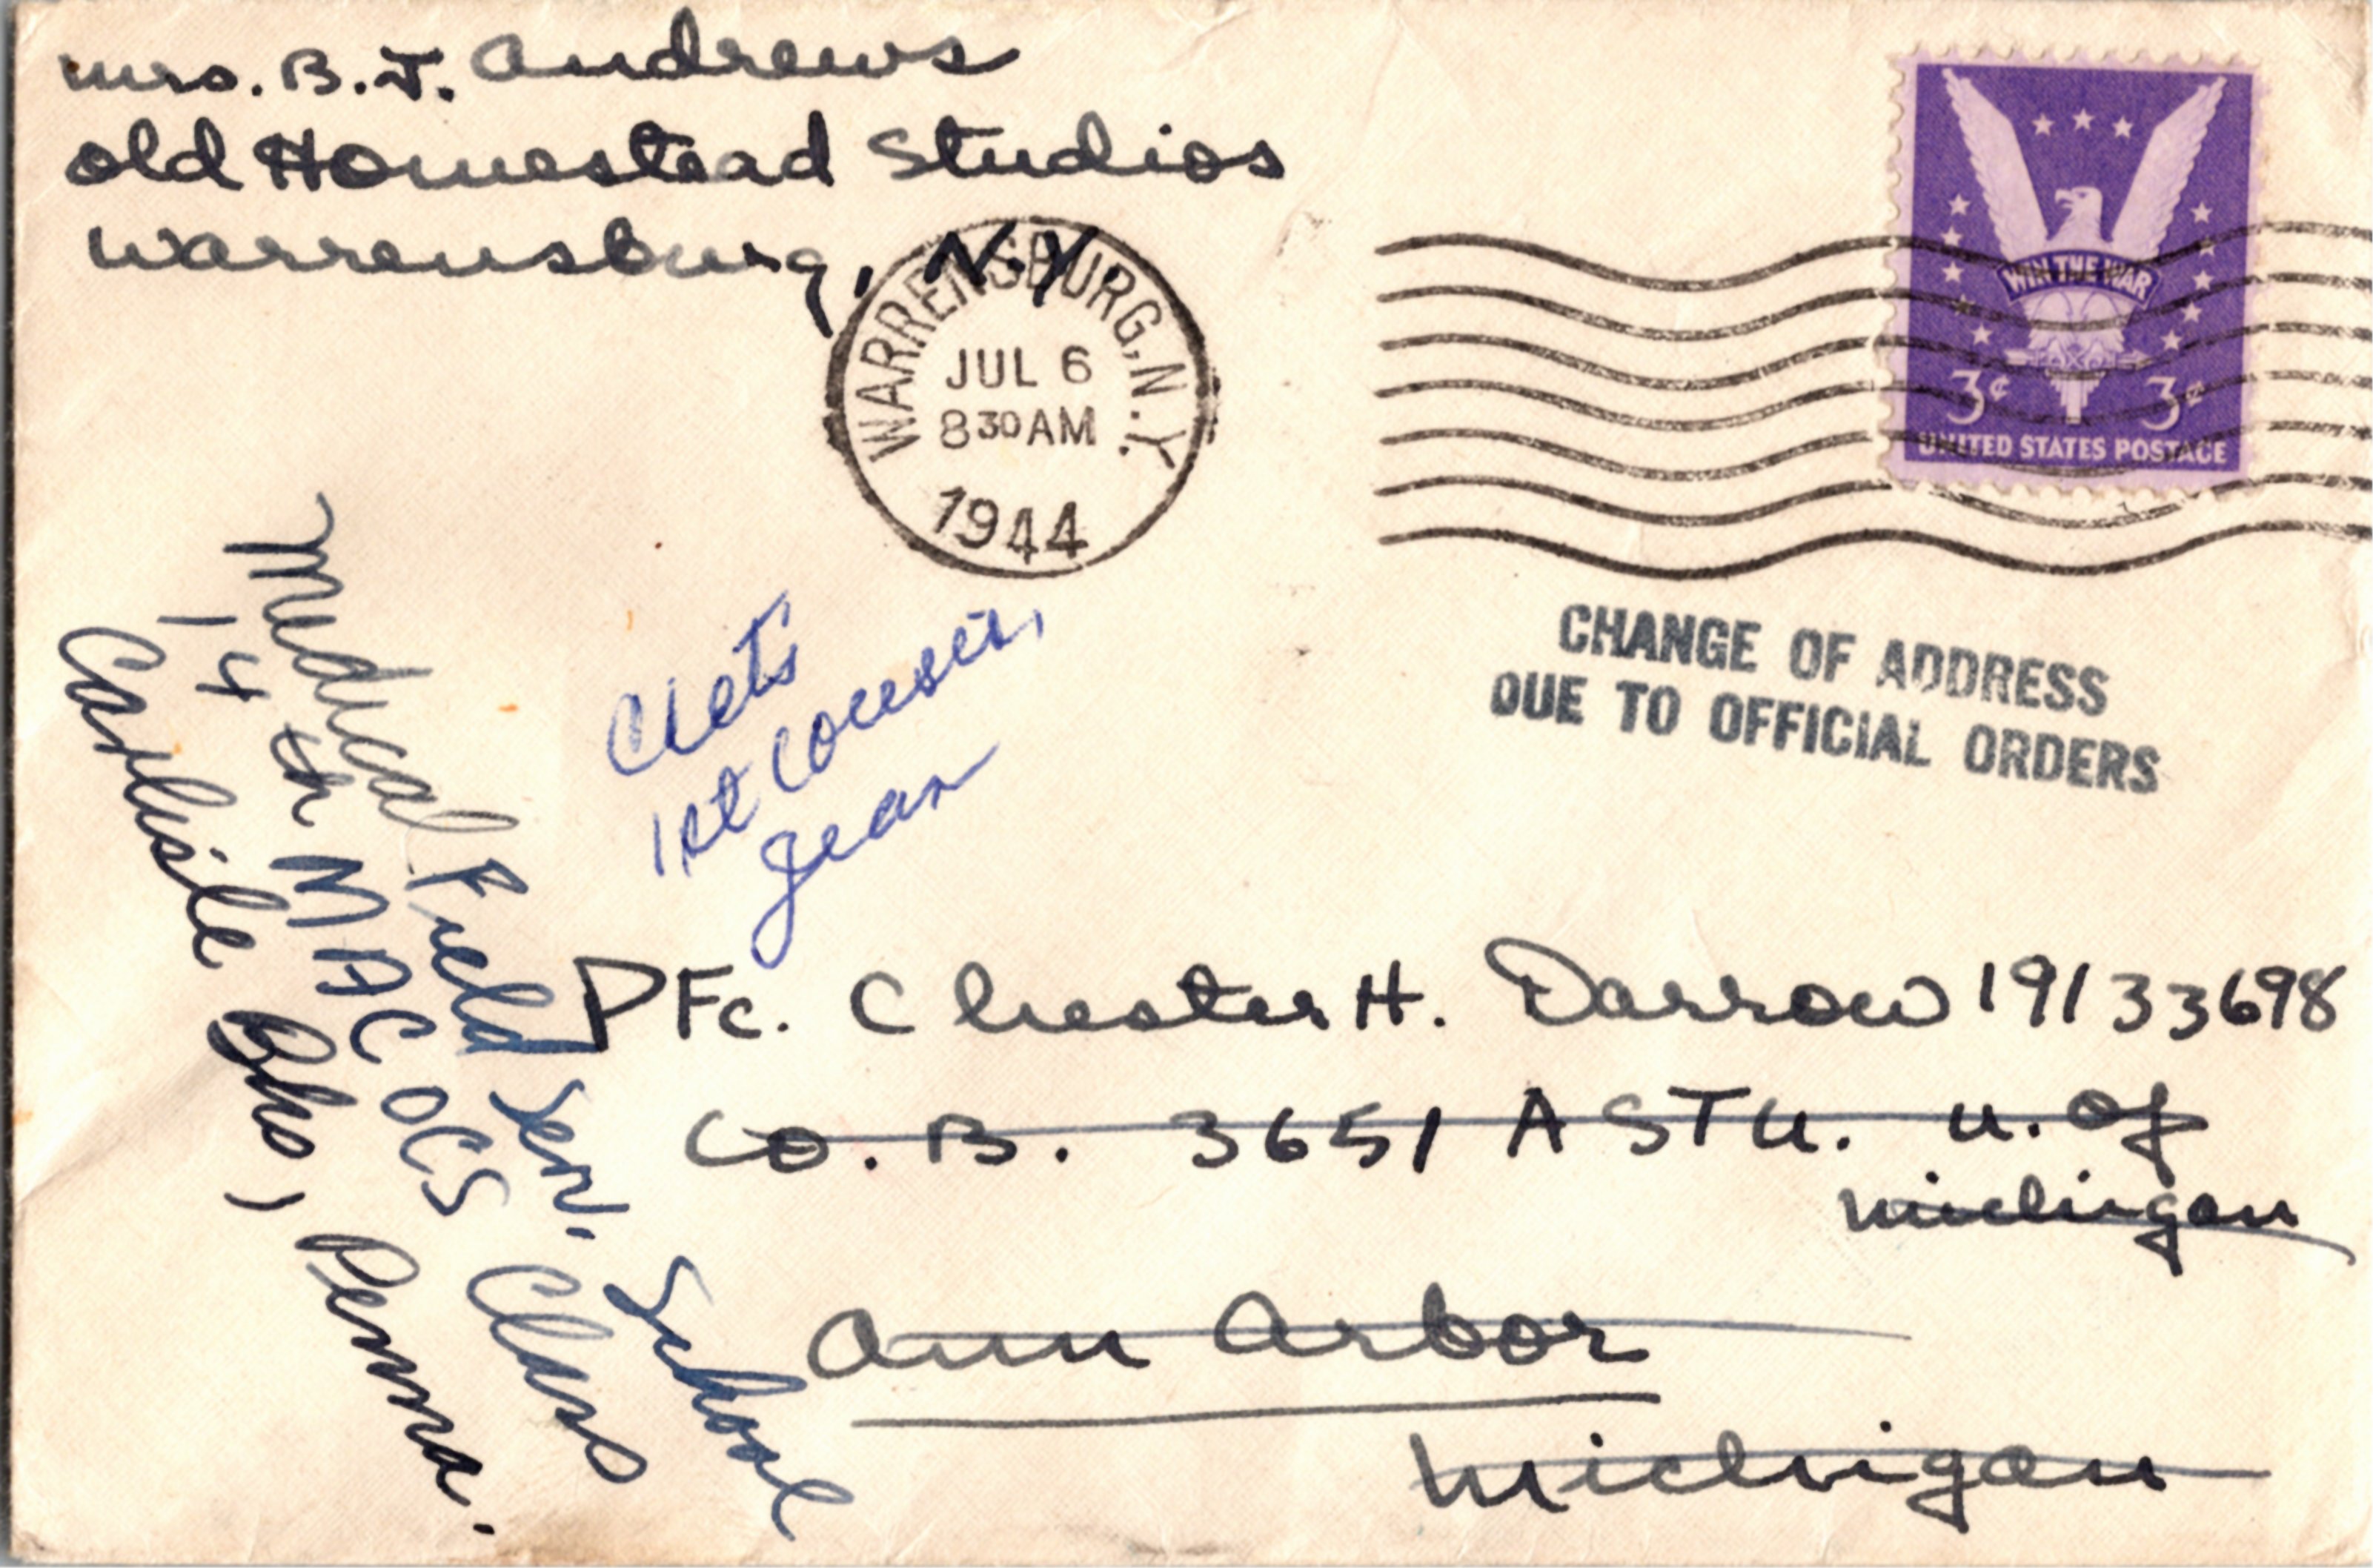 Mrs. B.J. Andrews
Old Homestead Studios
Warrensburg, N.Y.
WARRENSBURG, N.Y.
JUL 6
8 30 AM
1944
WIN THE WAR
3¢ 3¢
UNITED STATES POSTAGE
CHANGE OF ADDRESS
DUE TO OFFICIAL ORDERS
1st Cousin,
Jean
Pfc. Chester H. Darrow 19133698
Co. B. 3651 ASTU. U. of
Michigan
Ann Arbor
Michigan
Medical Field Serv. School
14th MAC OCS Class
Carlisle Bks, Penna.